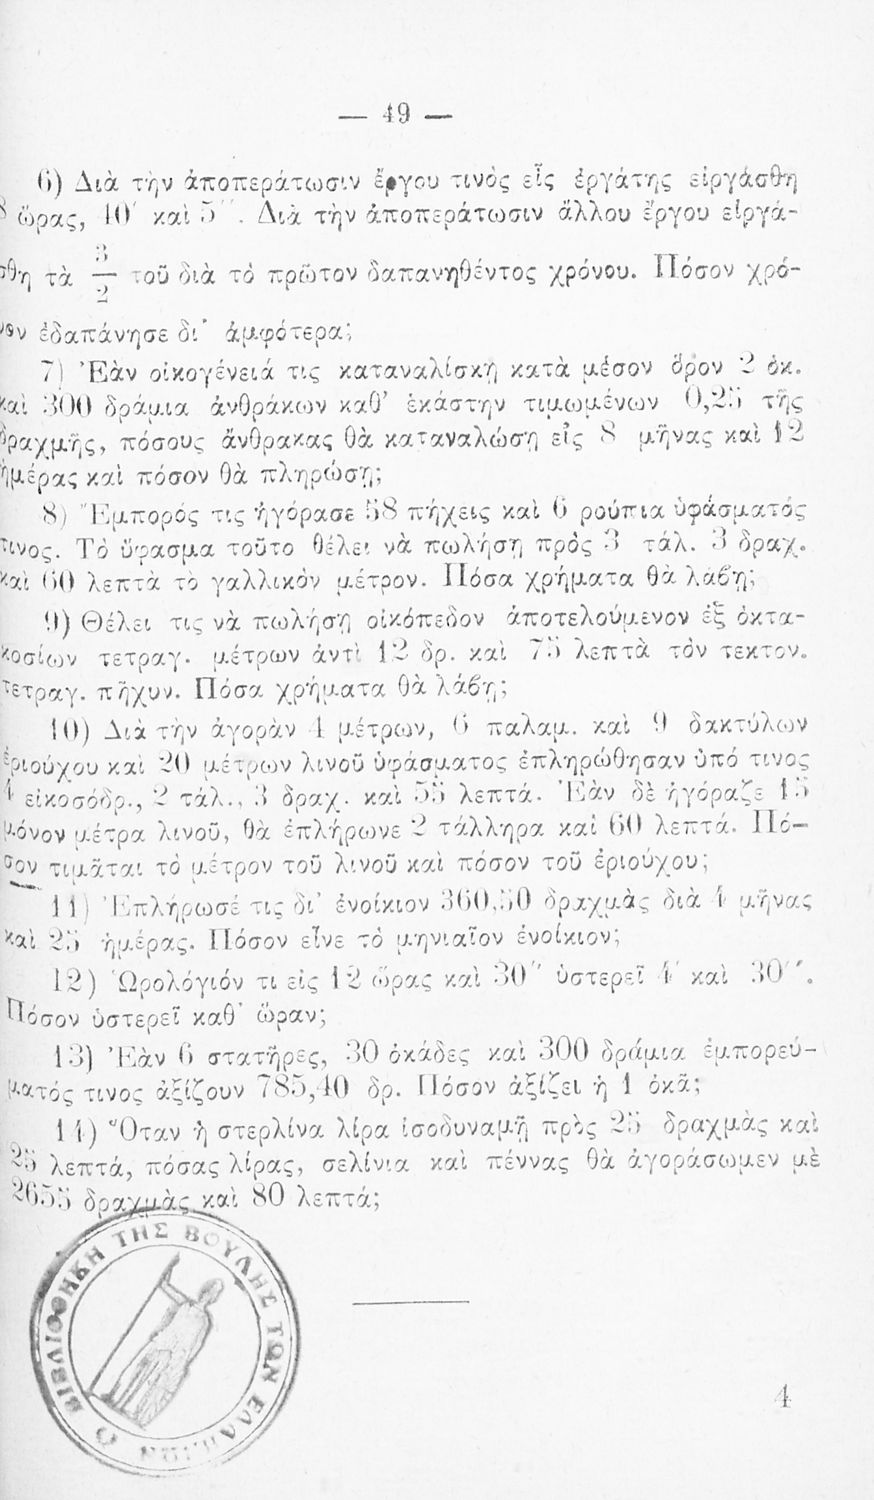 — 49 —
6) Διὰ τὴν ἀποπεράτωσιν ἔργου τινὸς εἷς ἐργάτης εἰργάσθη
8 ὥρας, 10′ καὶ 5″. Διὰ τὴν ἀποπεράτωσιν ἄλλου ἔργου εἰργά-
σθη τὰ 3/2 τοῦ διὰ τὸ πρῶτον δαπανηθέντος χρόνου. Πόσον χρό-
νον ἐδαπάνησε δι᾿ ἀμφότερα;
7) Ἐὰν οἰκογένειά τις καταναλίσκῃ κατὰ μέσον ὅρον 2 ὀκ.
καὶ 300 δράμια ἀνθράκων καθ᾿ ἑκάστην τιμωμένων 0,25 τῆς
δραχμῆς, πόσους ἄνθρακας θὰ καταναλώσῃ εἰς 8 μῆνας καὶ 12
ἡμέρας καὶ πόσον θὰ πληρώσῃ;
8) Ἔμπορός τις ἠγόρασε 58 πήχεις καὶ 6 ρούπια ὑφάσματός
τινος. Τὸ ὕφασμα τοῦτο θέλει νὰ πωλήσῃ πρὸς 3 τάλ. 3 δραχ.
καὶ 60 λεπτὰ τὸ γαλλικὸν μέτρον. Πόσα χρήματα θὰ λάβῃ;
9) Θέλει τις νὰ πωλήσῃ οἰκόπεδον ἀποτελούμενον ἐξ ὀκτα-
κοσίων τετραγ. μέτρων ἀντὶ 12 δρ. καὶ 75 λεπτὰ τὸν τεκτον.
τετραγ. πῆχυν. Πόσα χρήματα θὰ λάβῃ;
10) Διὰ τὴν ἀγορὰν 4 μέτρων, 6 παλαμ. καὶ 9 δακτύλων
ἐριούχου καὶ 20 μέτρων λινοῦ ὑφάσματος ἐπληρώθησαν ὑπό τινος
4 εἰκοσόδρ., 2 τάλ., 3 δραχ. καὶ 55 λεπτά. Ἐὰν δὲ ἠγόραζε 15
μόνον μέτρα λινοῦ, θὰ ἐπλήρωνε 2 τάλληρα καὶ 60 λεπτά. Πό-
σον τιμᾶται τὸ μέτρον τοῦ λινοῦ καὶ πόσον τοῦ ἐριούχου;
11) Ἐπλήρωσέ τις δι᾿ ἐνοίκιον 360,50 δραχμὰς διὰ 4 μῆνας
καὶ 25 ἡμέρας. Πόσον εἶνε τὸ μηνιαῖον ἐνοίκιον;
12) Ὡρολόγιόν τι εἰς 12 ὥρας καὶ 30″ ὑστερεῖ 4′ καὶ 30″.
Πόσον ὑστερεῖ καθ᾿ ὥραν;
13) Ἐὰν 6 στατῆρες, 30 ὀκάδες καὶ 300 δράμια ἐμπορεύ-
ματός τινος ἀξίζουν 785,40 δρ. Πόσον ἀξίζει ἡ 1 ὀκᾶ;
14) Ὅταν ἡ στερλίνα λίρα ἰσοδυναμῇ πρὸς 25 δραχμὰς καὶ
25 λεπτά, πόσας λίρας, σελίνια καὶ πέννας θὰ ἀγοράσωμεν μὲ
2655 δραχμὰς καὶ 80 λεπτά;
ΒΙΒΛΙΟΘΗΚΗ ΤΗΣ ΒΟΥΛΗΣ ΤΩΝ ΕΛΛΗΝΩΝ
4